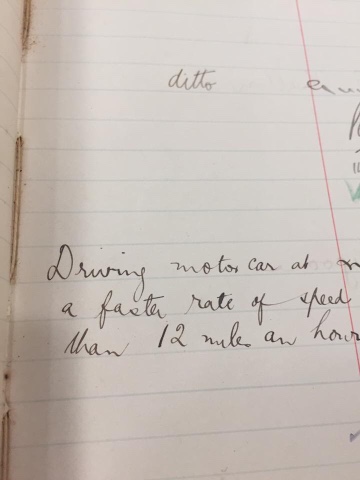 ditto
Driving motor car at
a faster rate of speed
than 12 miles an hour